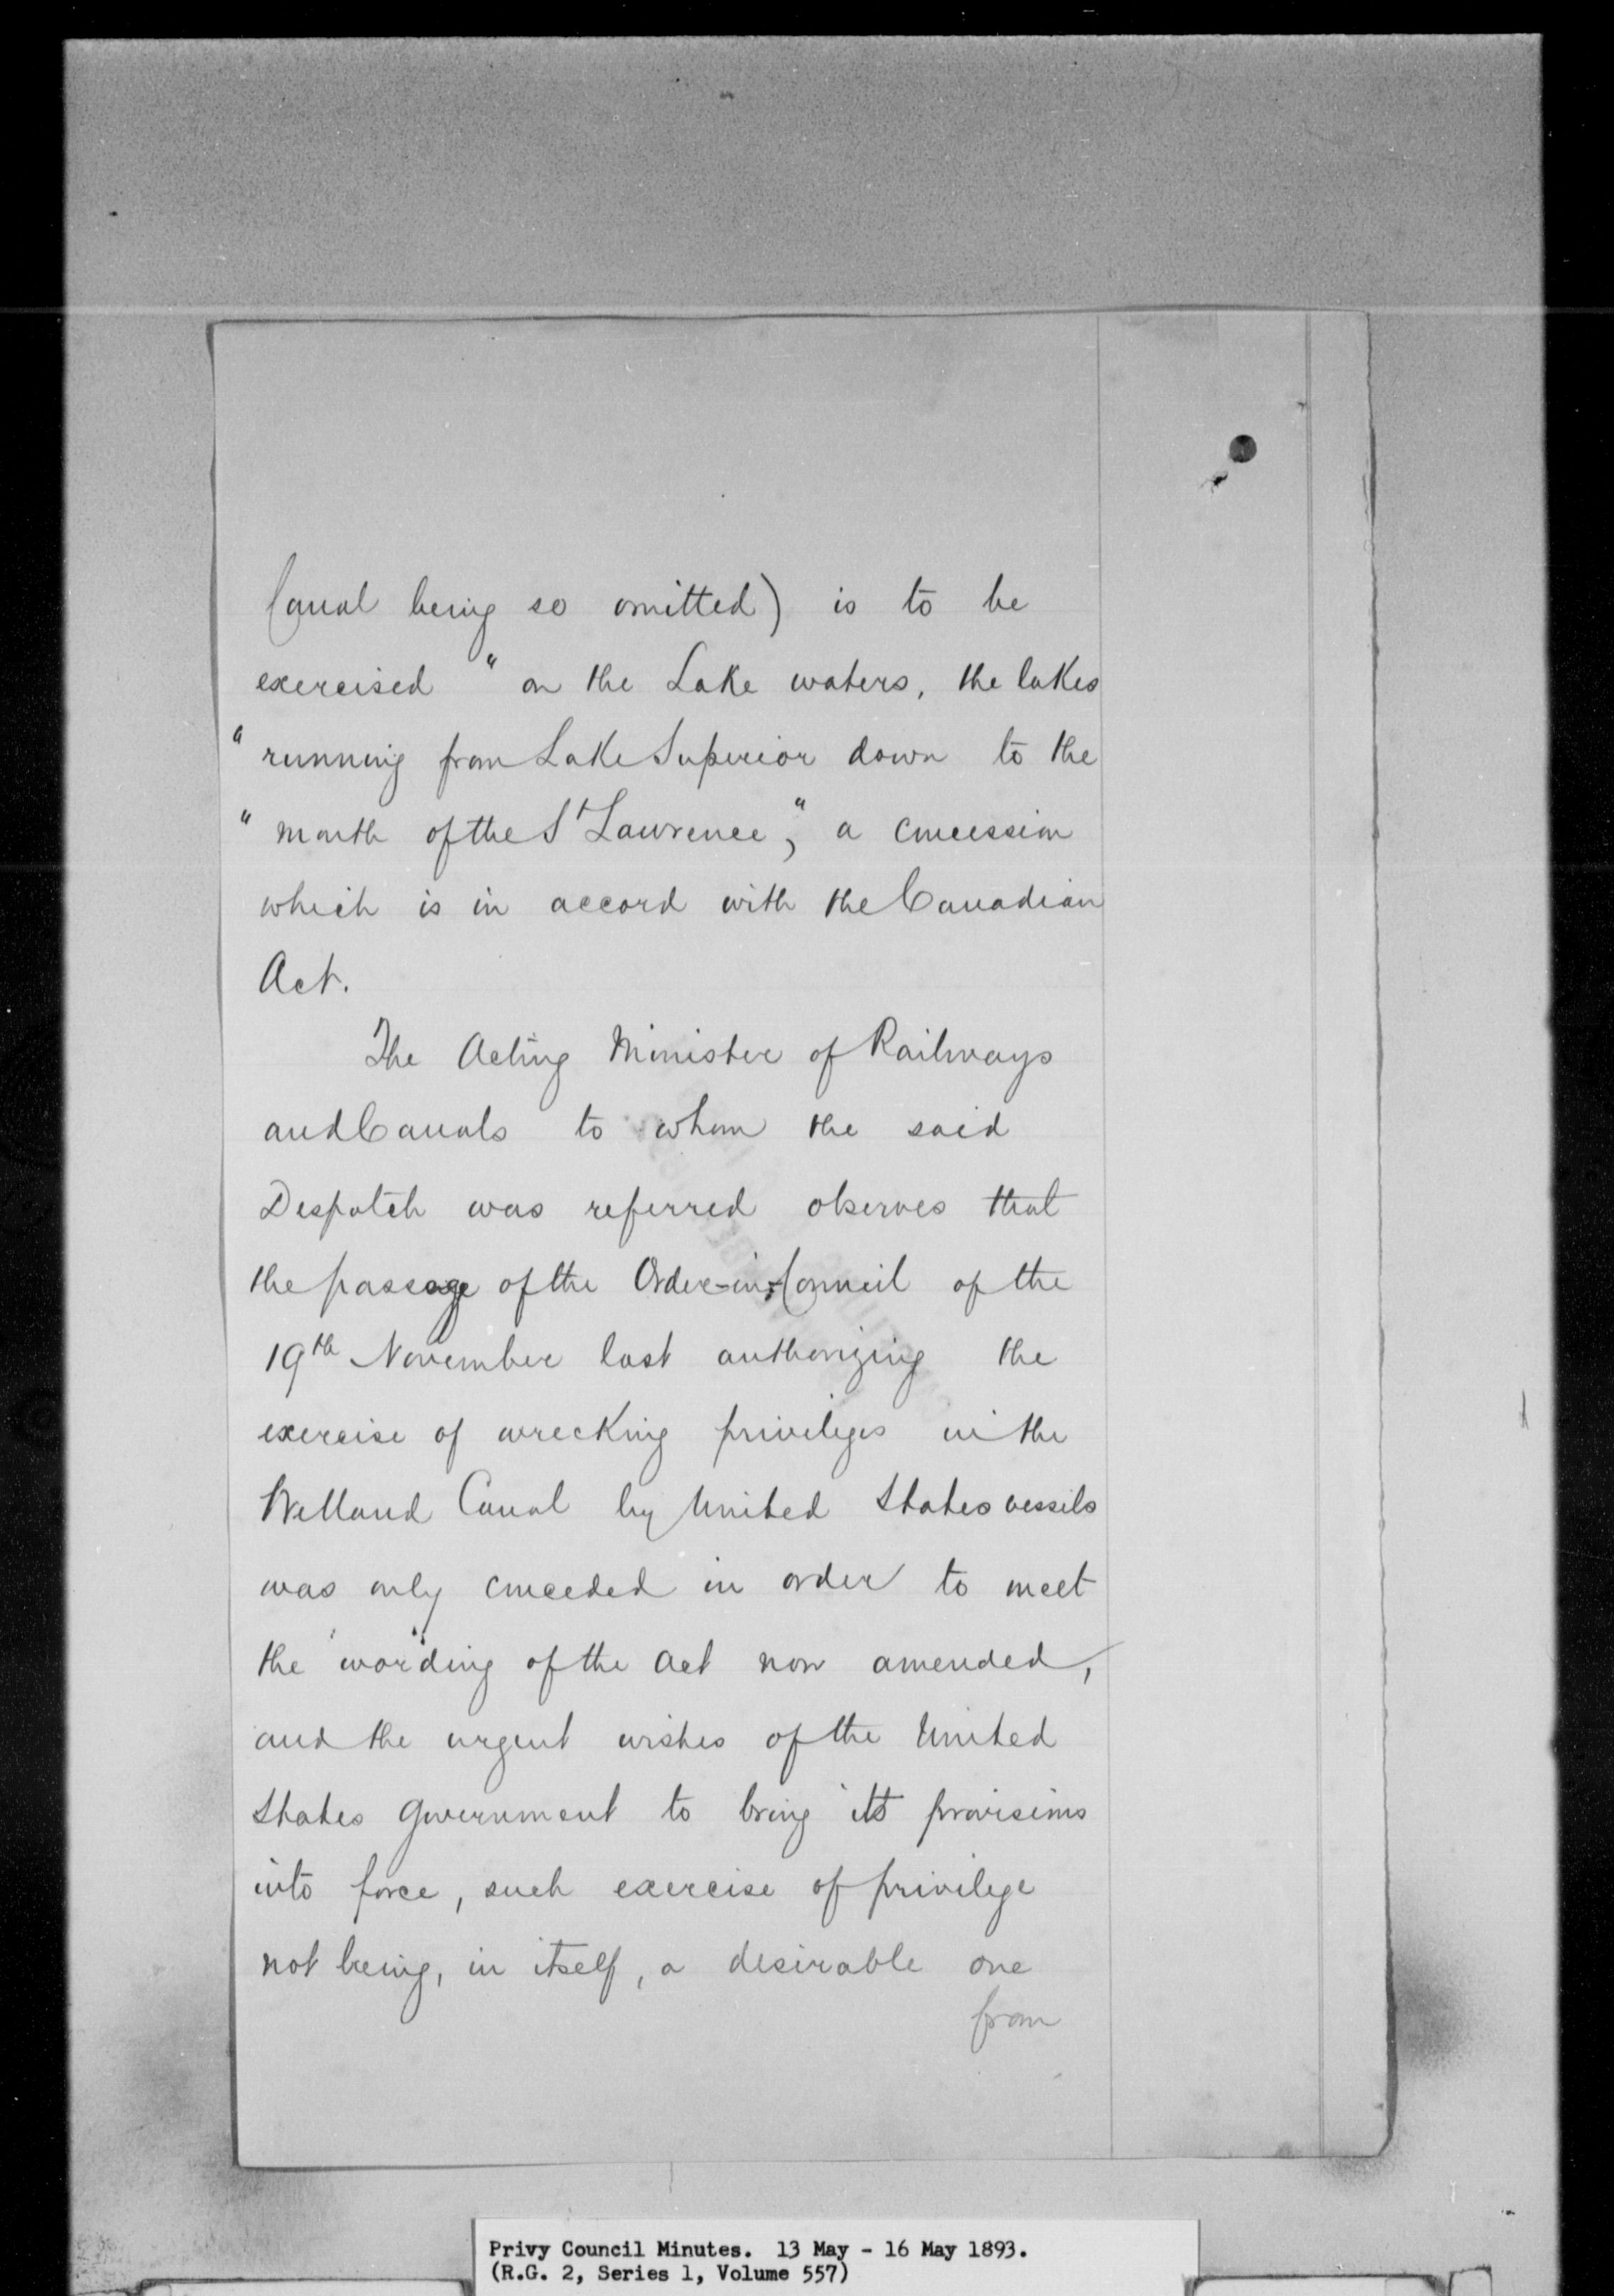 Canal being so omitted) is to be
exercised "on the Lake waters, the lakes
"running from Lake Superior down to the
"mouth of the St Lawrence," a concession
which is in accord with the Canadian
Act.
The Acting Minister of Railways
and Canals to whom the said
Despatch was referred observes that
the passage of the Order-in-Council of the
19th November last authorizing the
exercise of wrecking privileges in the
Welland Canal by United States vessels
was only conceded in order to meet
the wording of the Act now amended,
and the urgent wishes of the United
States Government to bring its provisions
into force, such exercise of privilege
not being, in itself, a desirable one
from
Privy Council Minutes. 13 May - 16 May 1893.
(R.G. 2, Series 1, Volume 557)